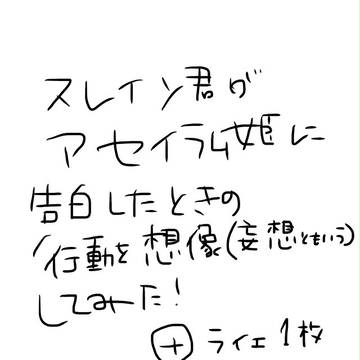 スレイン君が
アセイラム姫に
告白したときの
行動を想像(妄想ともいう)
してみた!
+ライエ1枚